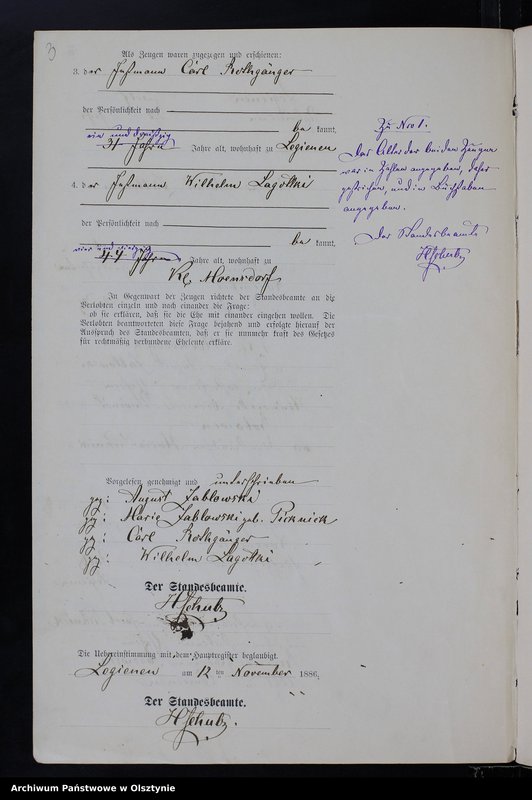 3
Als Zeugen waren zugezogen und erschienen:
3. der Instmann Carl Rothgänger
der Persönlichkeit nach
be kannt,
vier und dreißig
34 Jahre Jahre alt, wohnhaft zu Logienen
4. der Instmann Wilhelm Lagottki
der Persönlichkeit nach
be kannt,
vier und vierzig
44 Jahren Jahre alt, wohnhaft zu
Kl. Moensdorf
In Gegenwart der Zeugen richtete der Standesbeamte an die
Verlobten einzeln und nach einander die Frage:
ob sie erklären, daß sie die Ehe mit einander eingehen wollen. Die
Verlobten beantworteten diese Frage bejahend und erfolgte hierauf der
Ausspruch des Standesbeamten, daß er sie nunmehr kraft des Gesetzes
für rechtmäßig verbundene Eheleute erkläre.
Zu Nro 1.
Das Alter der beiden Zeugen
war in Zahlen angegeben, daher
gestrichen, und in Buchstaben
angegeben.
Der Standesbeamte
HSchulz
Vorgelesen, genehmigt und unterschrieben
gez: August Jablowski
gez: Marie Jablowski geb. Picknick
gez: Carl Rothgänger
gez: Wilhelm Lagottki
Der Standesbeamte.
HSchulz
Die Uebereinstimmung mit dem Hauptregister beglaubigt.
Logienen am 12 ten November 1886.
Der Standesbeamte.
HSchulz.
Archiwum Państwowe w Olsztynie